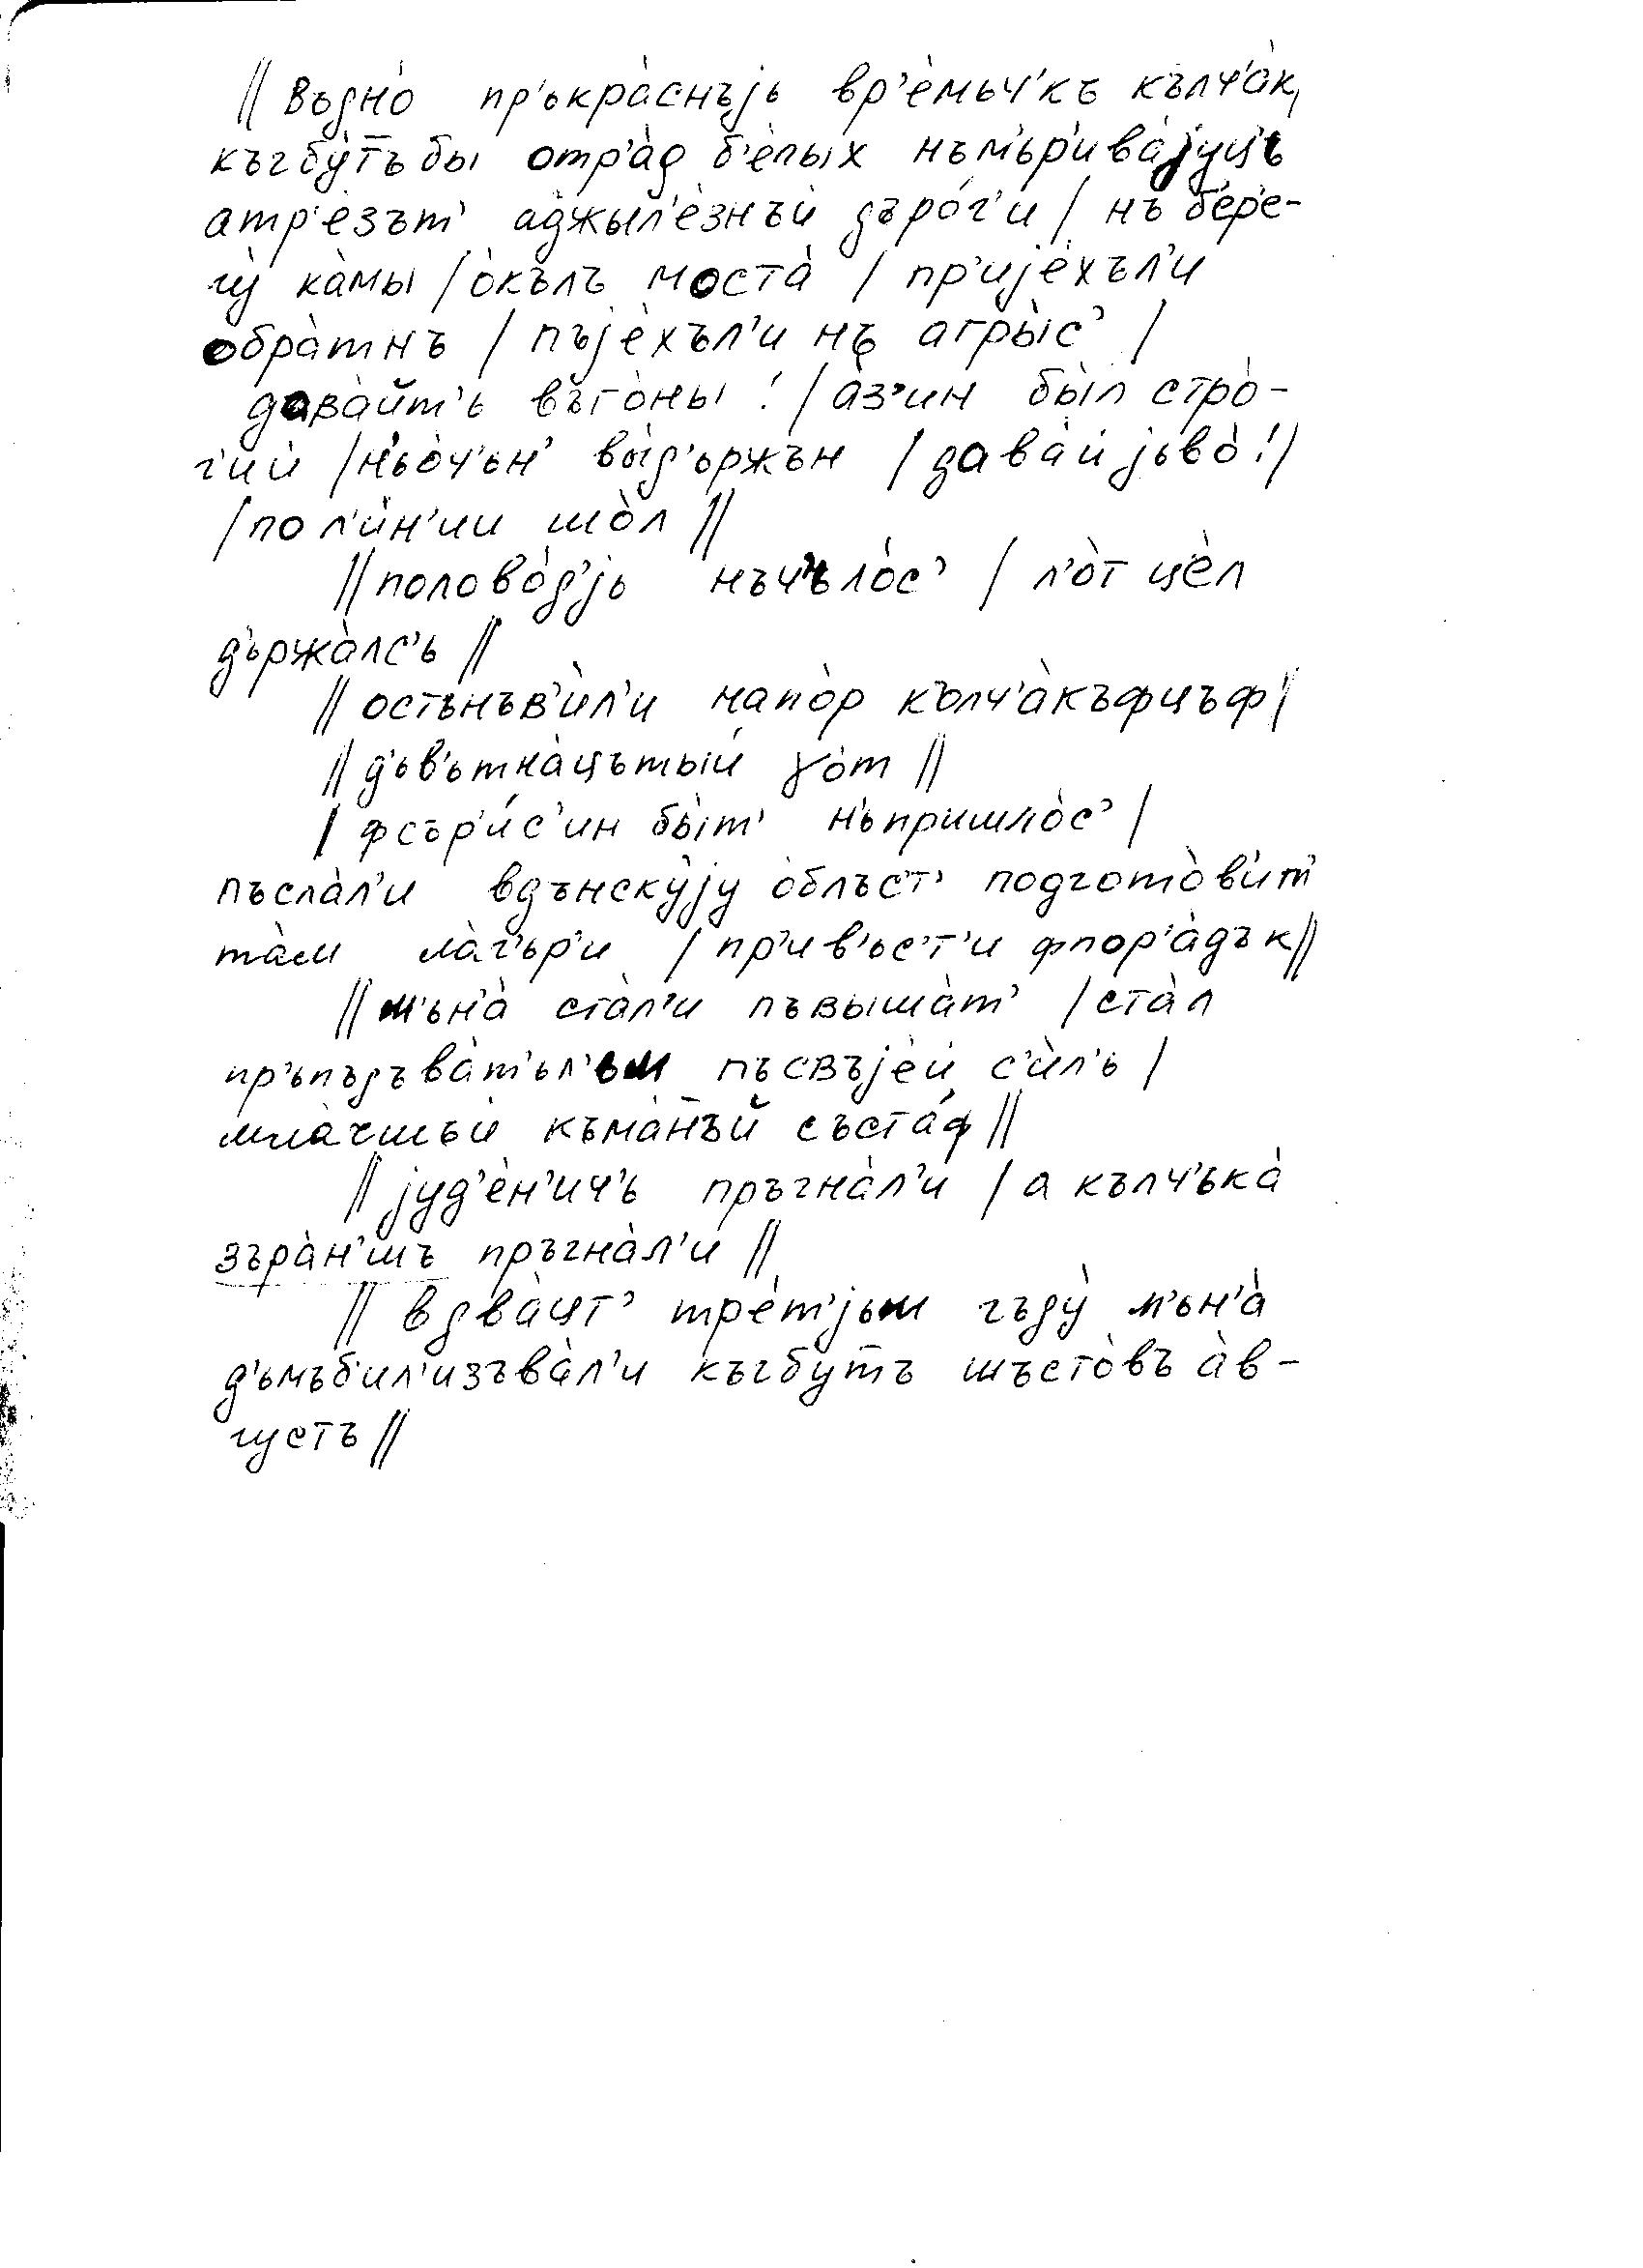 // въдно̀ пр'ькра̀снъjь вр'ѐмьч'къ кълч'а̀к,
къгбу̀т̅ъ бы отр'а̀д б'ѐлых нъм'ър'ива̀jуц̅ъ
атр'ѐзът' аджыл'ѐзнъй дъро́г'и / нъ б'ер'е-
гу̀ ка̀мы / о̀кълъ моста̀ / пр'иjѐхъл'и
обра̀тнъ / пъjѐхъл'и нъ агры̀с' /
дава̀йт'ь въго̀ны! / а̀з'ин бы̀л стро̀-
г'ий / н'ьо̀ч'ьн' вы̀д'ьржън / дава̀й jьво̀! /
/ по л'ѝн'ии шо̀л //
// полово̀д'jь нъч'ъло̀с' / л'о̀т цѐл
д'ьржа̀лс'ь //
// остънъв'ѝл'и напо̀р кълч'а̀къфцъф /
// д'ьв'ьтна̀цътый ɣо̀т //
/ фсър'и́с'ин бы̀т' н'ьпришло̀с' /
пъсла̀л'и вдънску̀jу о̀блъс'т' подгото̀в'ит'
та̀м ла̀г'ьр'и / пр'ив'ьс'т'и фпор'а̀дък //
// м'ьн'а̀ ста̀л'и пъвыша̀т' / ста̀л
пр'ьпъдъва̀т'ьл'ьм пъсвъjѐй с'ѝл'ь /
мла̀чшъй къма̀н̅ъй съста́ф //
// jуд'ѐн'ич'ь пръгна̀л'и / а кълч'ька̀
зъра̀н'шъ пръгна̀л'и //
// вдва̀цт' трѐт'jьм гъду̀ м'ьн'а̀
д'ьмъб'ил'изъва̀л'и къгбут̅ъ шъсто̀въ а̀в-
густъ //